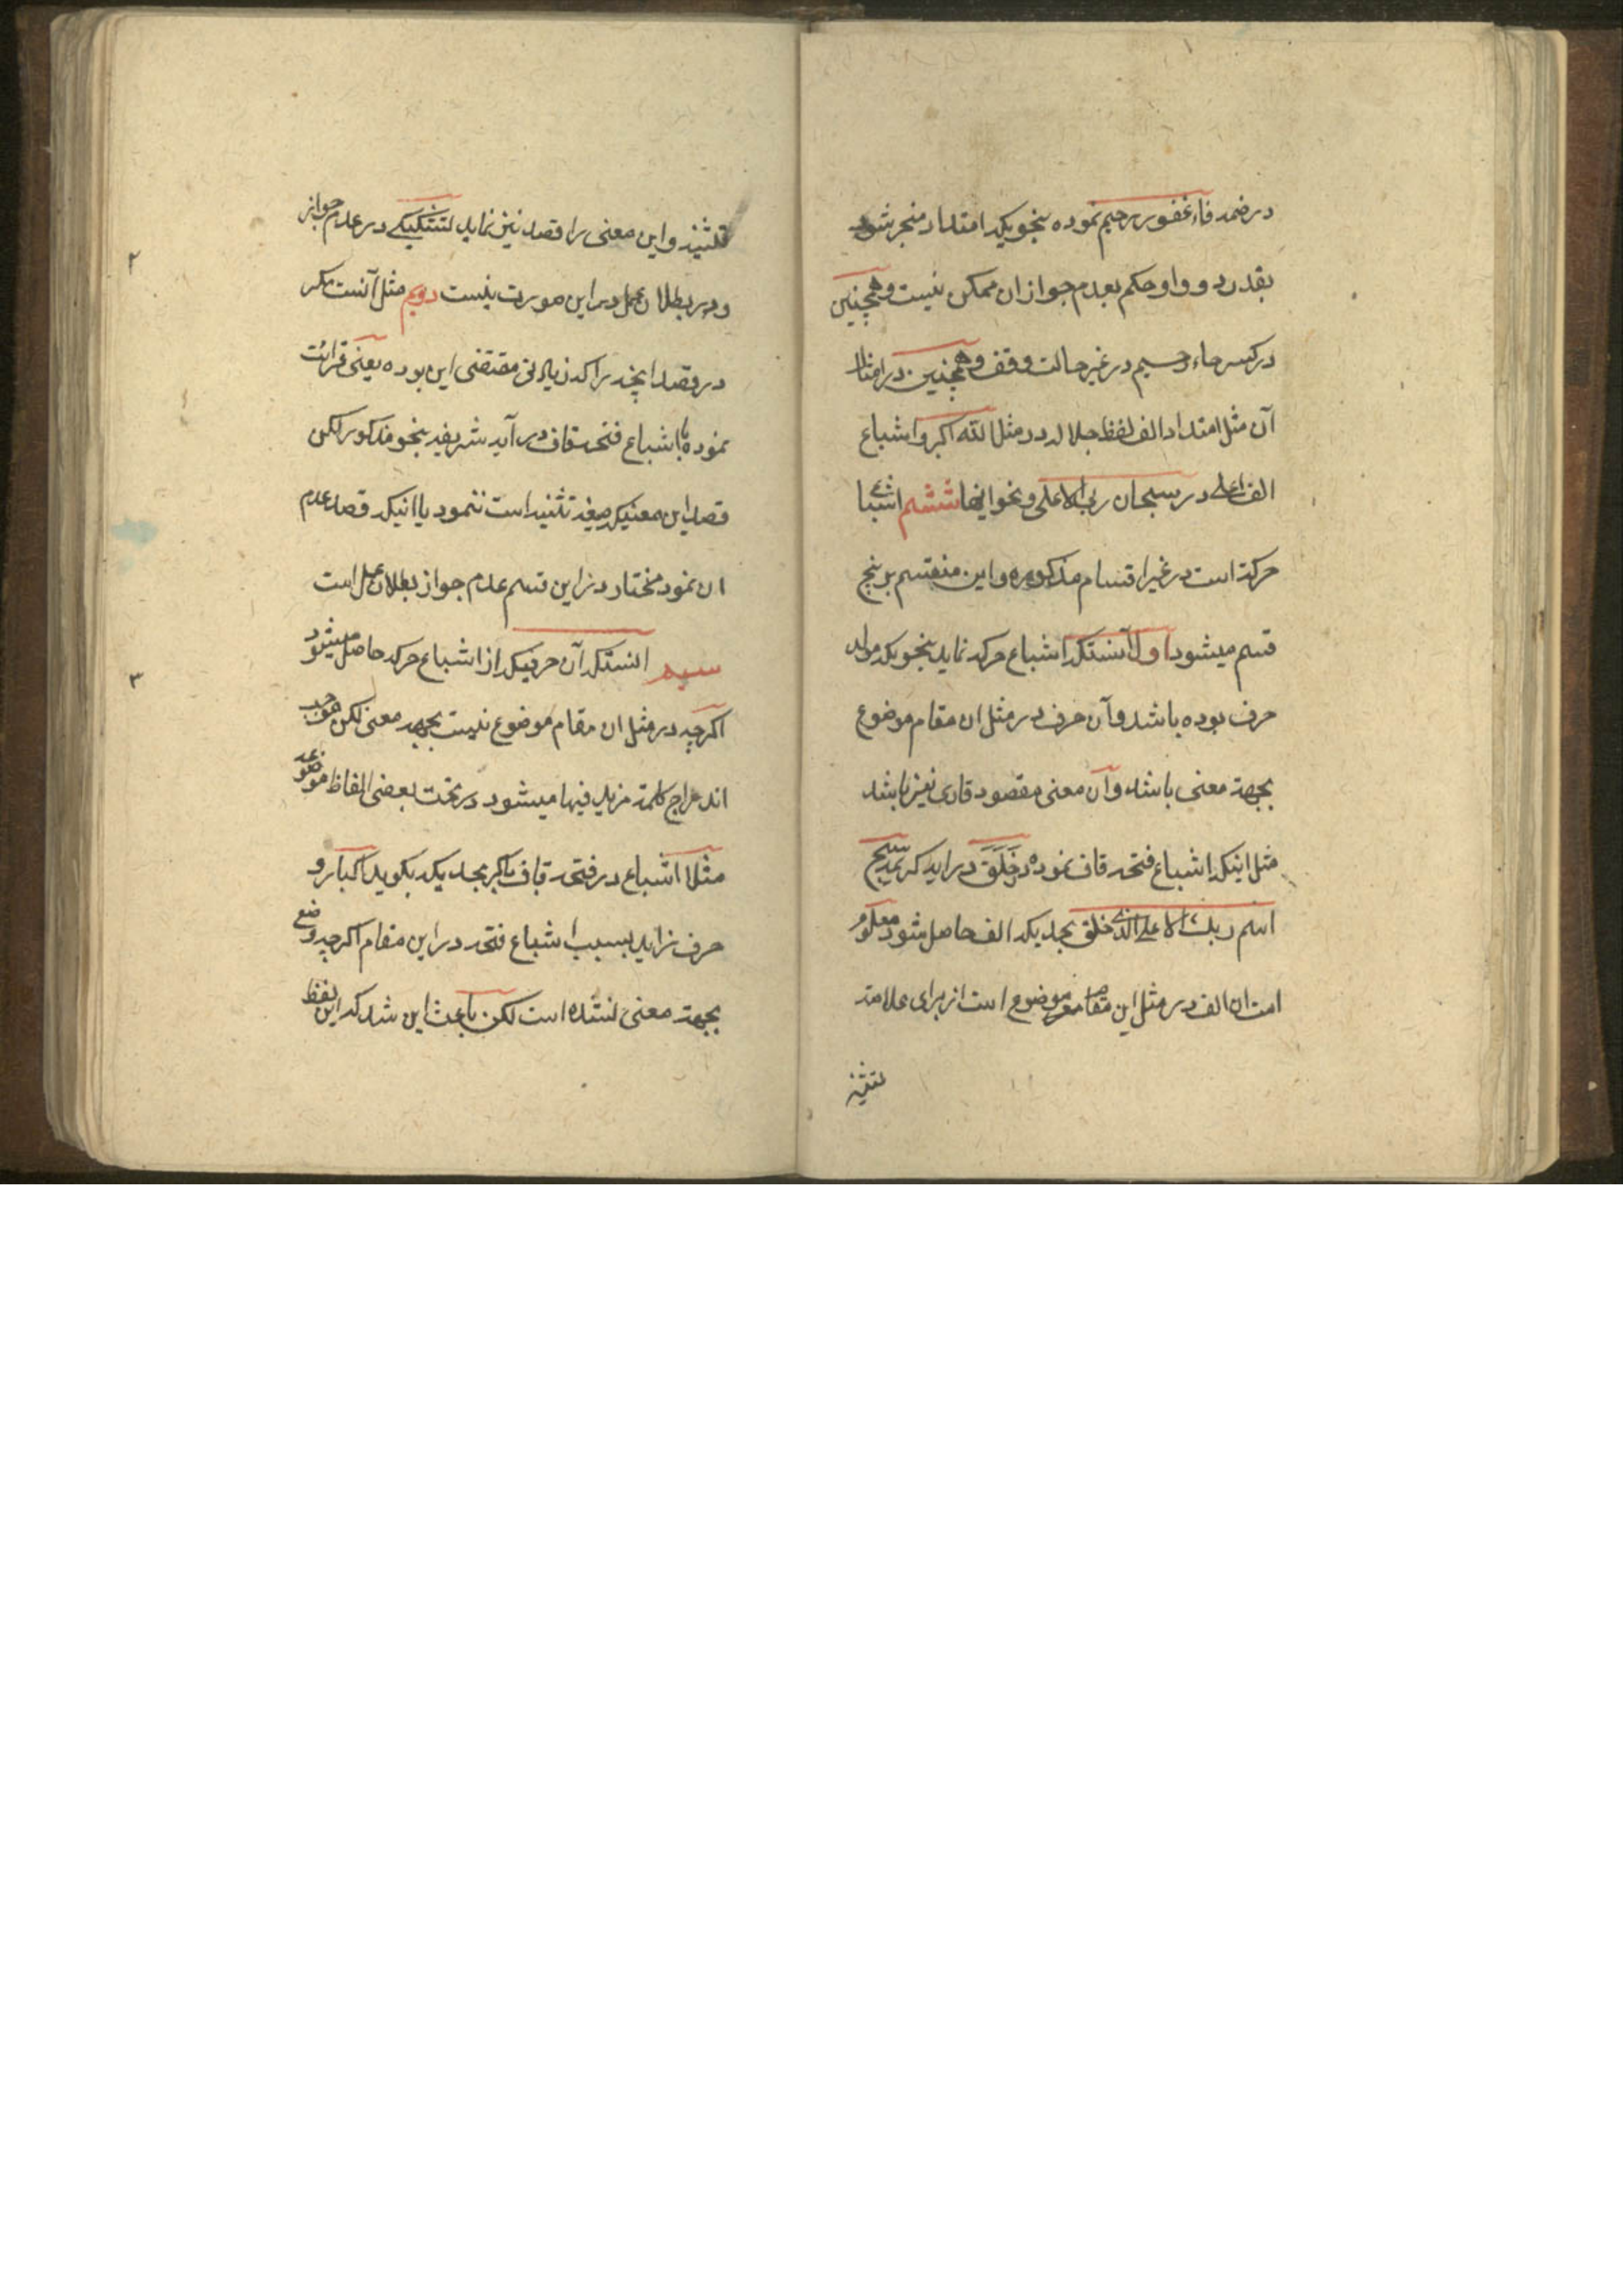 در ضمه فاء غفور رحیم نموده بنحویکه امتداد منجر شود
بقدر دو واو حکم بعدم جواز ان ممکن نیست و همچنین
در کسر حاء رحیم در غیر حالت وقف و همچنین در امثال
آن مثل امتداد الف لفظ جلاله در مثل الله اکبر و اشباع
الف اعلی در سبحان ربی الاعلی و نحو اینها ششم اشباع
حرکة است در غیر اقسام مذکوره و این منقسم بر پنج
قسم میشود اول آنستکه اشباع حرکه نماید بنحویکه مولد
حرف بوده باشد و آن حرف در مثل ان مقام موضوع
بجهة معنی باشد و آن معنی مقصود قاری نیز باشد
مثل اینکه اشباع فتحه قاف نموده در خَلَقَ در ایه کریمه سبح
اسم ربک الاعلی الذی خلق بحدیکه الف حاصل شود معلوم
است ان الف در مثل این مقام موضوع است از برای علامة
تثنیه
تثنیه و این معنی را قصد نیز نماید لتشکیکی در عدم جواز
و در بطلان عمل در این صورت نیست دویم مثل آنست مکر
در قصد اینچه را که زیادتی مقتضی این بوده یعنی قرائت
نموده با اشباع فتحه قاف در آیه شریفه بنحو مذکور لکن
قصد این معنیکه صیغه تثنیه است ننمود یا اینکه قصد عدم
ان نمود مختار در این قسم عدم جواز بطلان عمل است
سیم انستکه آن حرفیکه از اشباع حرکه حاصل میشود
اکرچه در مثل ان مقام موضوع نیست بجهه معنی لکن موجب
اندراج کلمة مزید فیها میشود در تحت بعضی الفاظ موضوعه
مثلا اشباع در فتحه قاف اکبر بحدیکه بکوید اکبار و
حرف زاید بسبب اشباع فتحه در این مقام اکرچه وضع
بجهة معنی نشده است لکن باعث این شد که این لفظ
۲
۳